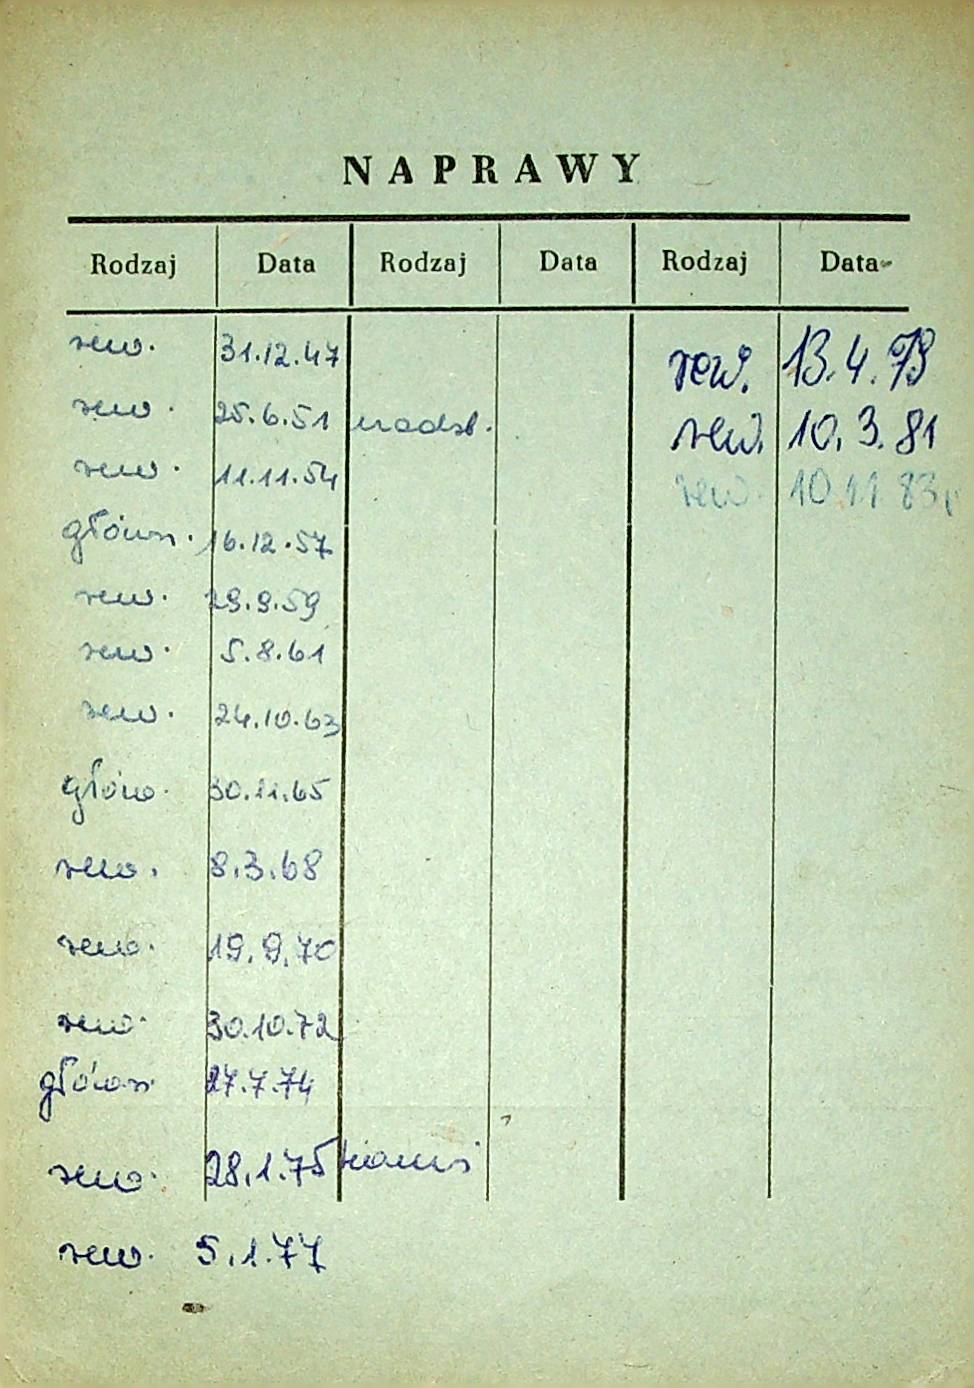 NAPRAWY
Rodzaj Data Rodzaj Data Rodzaj Data
rew. 31.12.47
rew. 25.6.51
rew. 11.11.54
główn. 16.12.57
rew. 29.9.59
rew. 5.8.61
rew. 24.10.63
główn. 30.11.65
rew. 8.3.68
rew. 19.9.70
rew. 30.10.72
główn 27.7.74
rew. 28.1.75
rew. 5.1.77
rew. 13.4.79
rew. 10.3.81
rew. 10.11.83